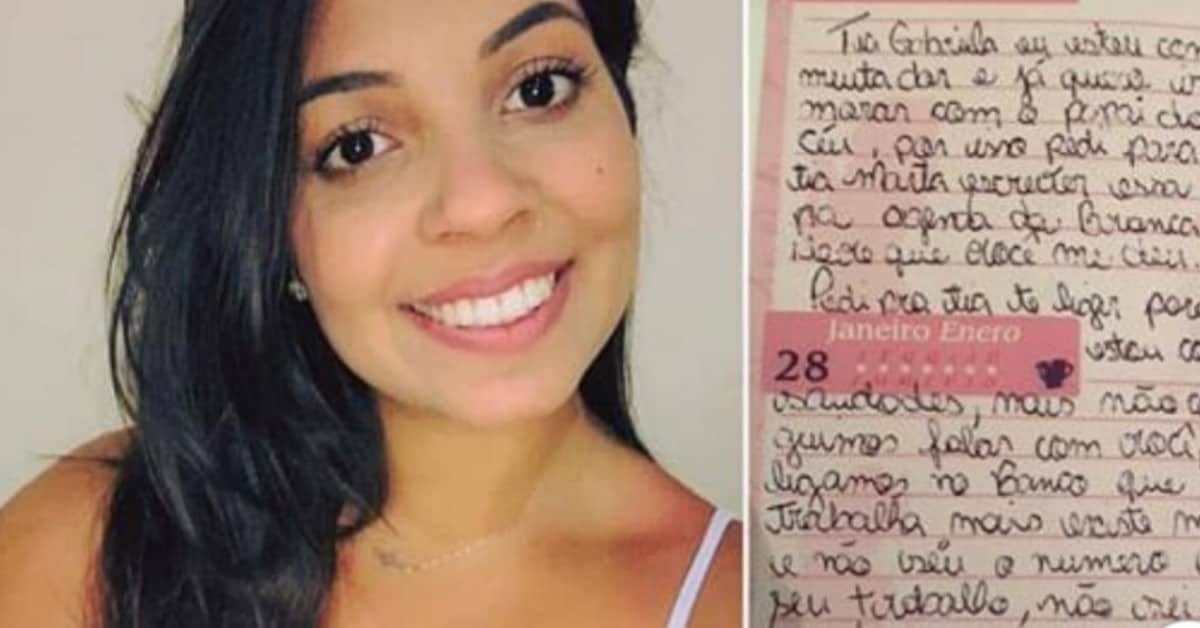 Tia Gabriela eu estou com
muita dor e já quase
morar com o papai do
céu, por isso pedi para
tia Marta escrever essa
na agenda da Branca
Neve que você me deu.
Pedi pra tia te ligar por
Janeiro Enero
28
estou
saudades, mais não
guimos falar com você,
ligamos no Banco que
Trabalha mais existe
e não
o numero
seu trabalho, não